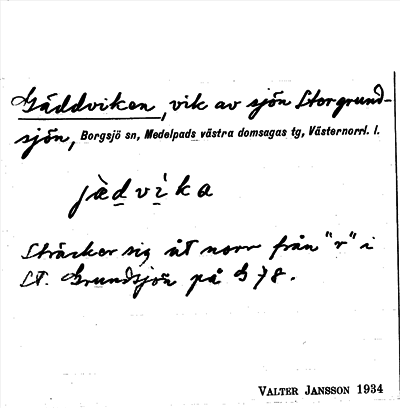 Gäddviken, vik av sjön Storgrund-
sjön, Borgsjö sn, Medelpads västra domsagas tg, Västernorrl. l.
jàd̲vì̲ka
Sträcker sig åt norr från "r" i
St. Grundsjön på G 78.
VALTER JANSSON 1934